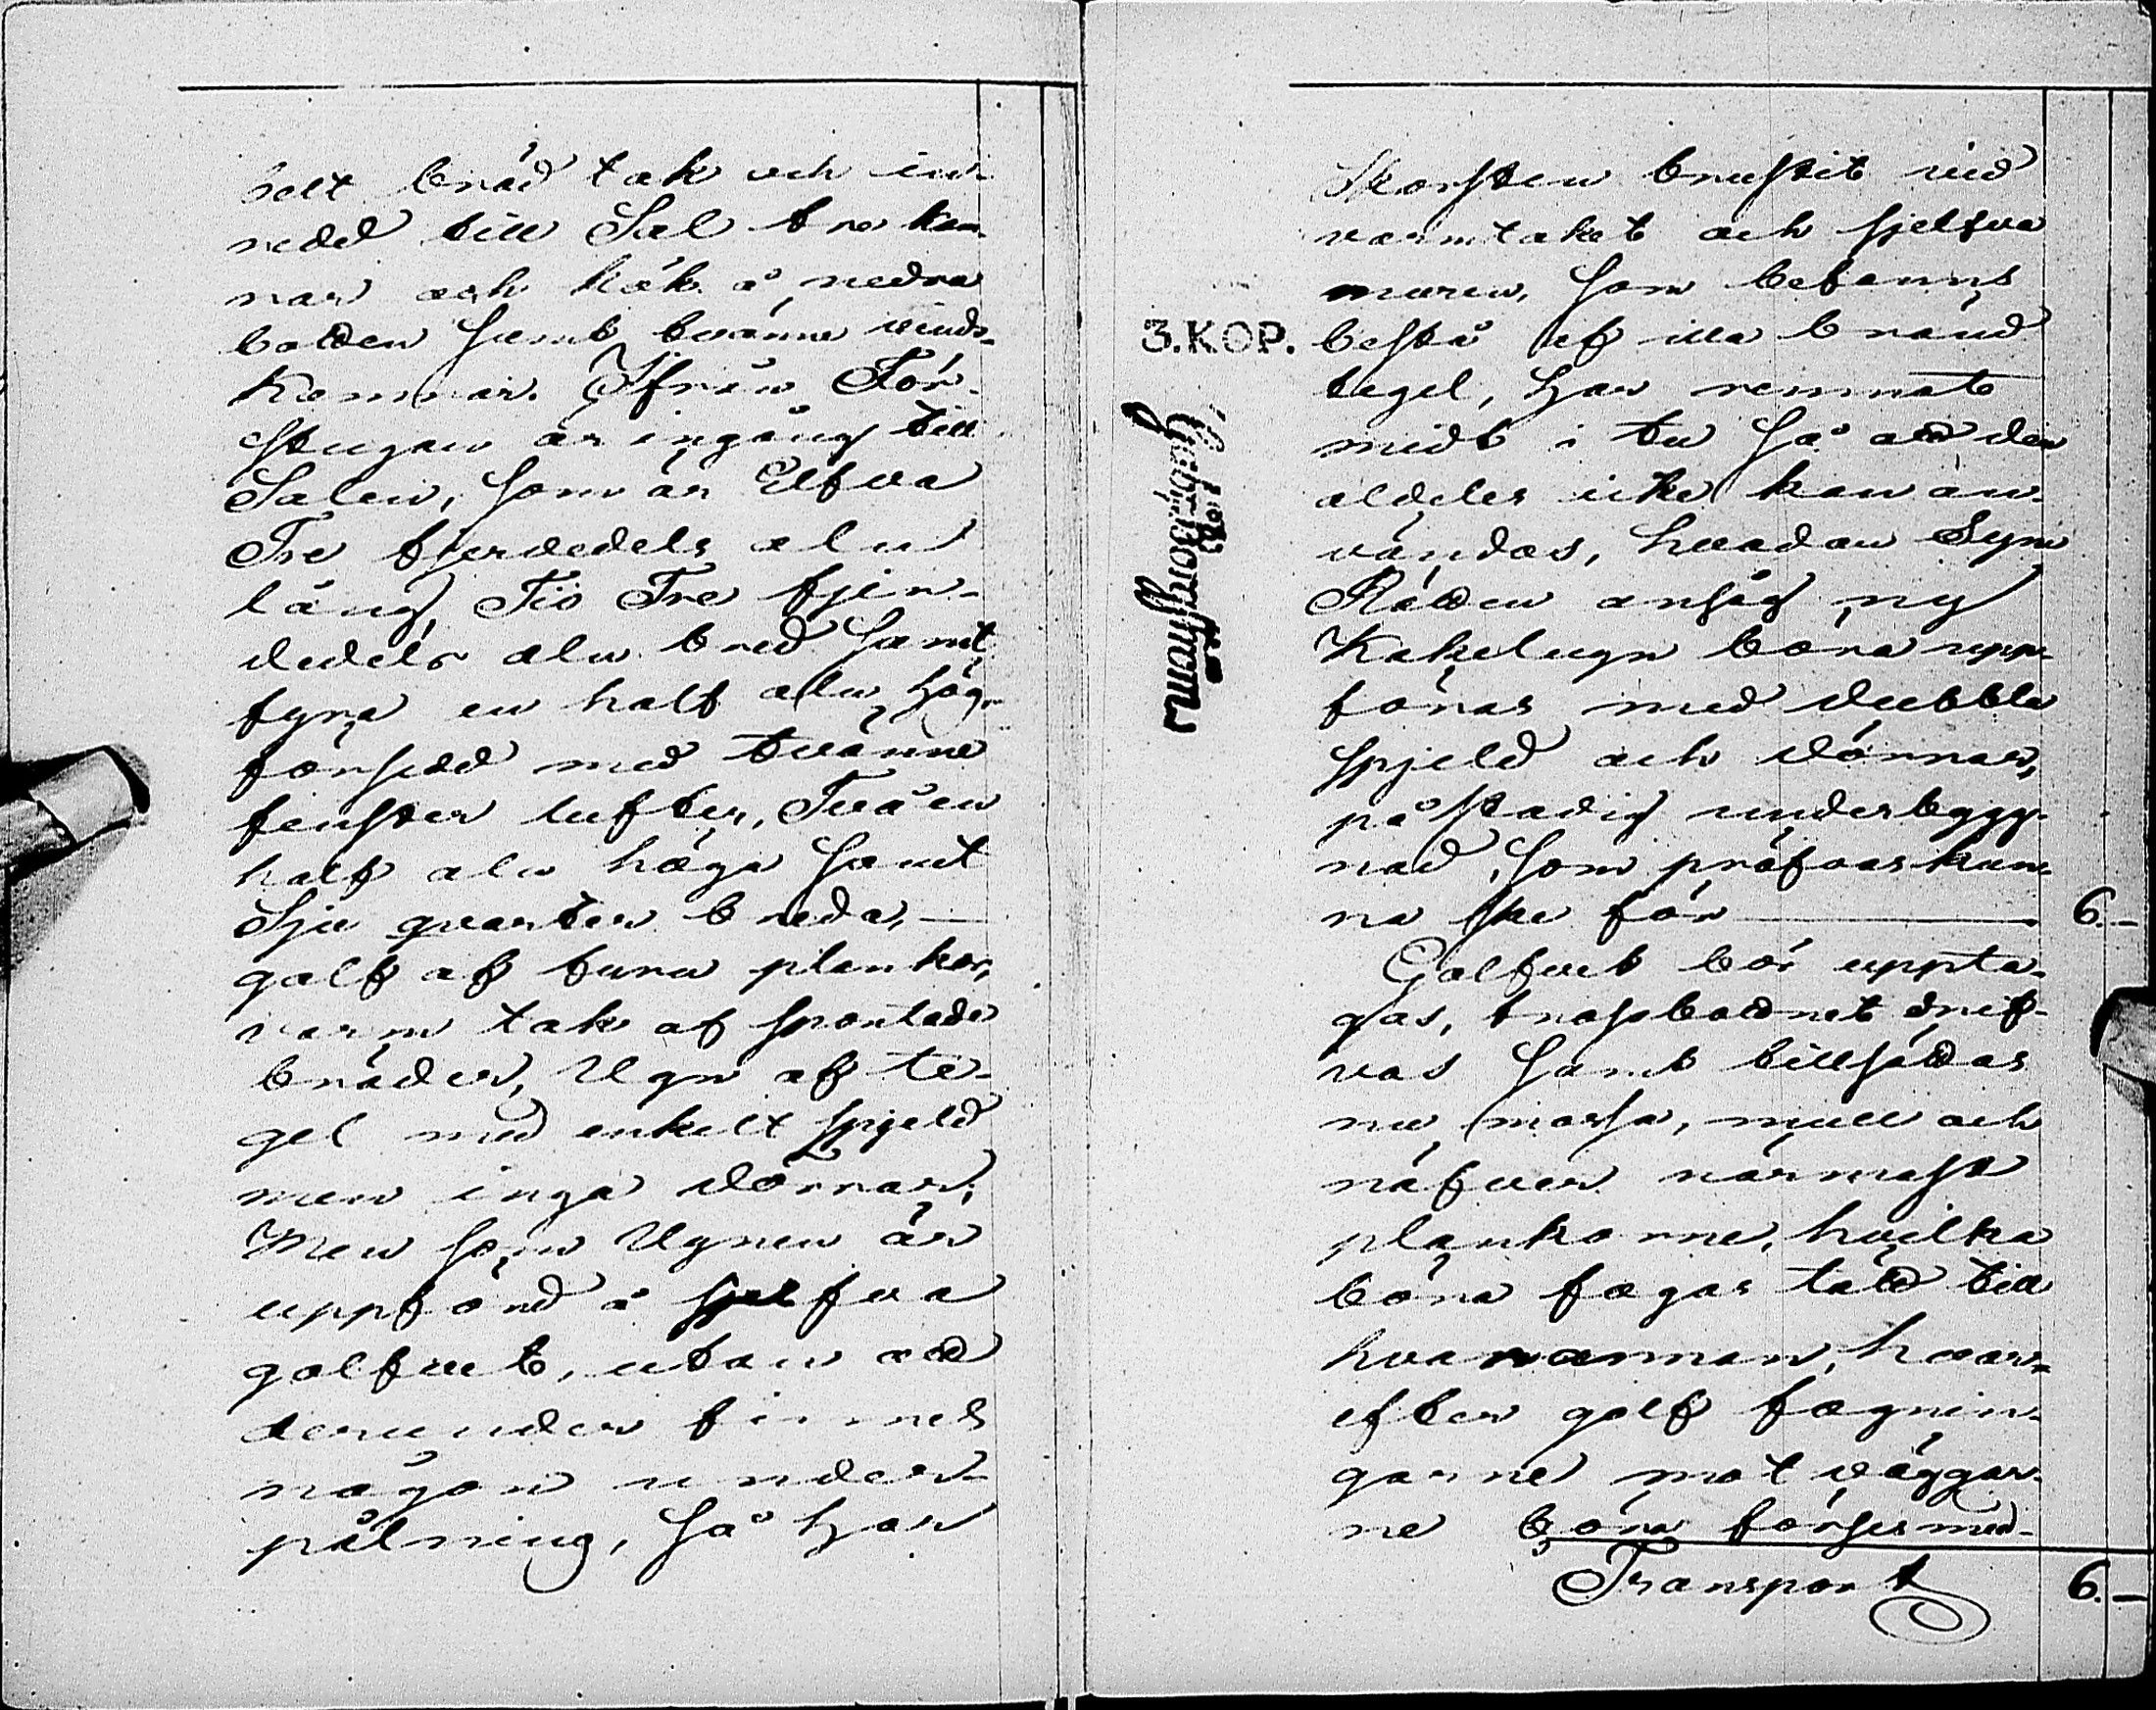 belt bräd tak och in-
redd till Sal tre kam-
rar och kök å nedra
botten samt tvänne vinds-
kamrar. Ifrån För-
stugan är ingång till
Salen, som är Elfva
Tre fjerdedels aln
lång, Tio Tre fjer-
dedels aln bred samt
fyra en half aln hög,
försedd med tvänne
fenster lufter, Två en
half aln höga samt
Sju qvarter breda, —
golf af furu plankor,
varm tak af spontade
bräder, Ugn af te-
gel med enkelt spjeld
men inga dörrar;
Men som Ugnen är
uppförd å sjelfva
golfvet, utan att
derunder finnes
någon under-
pålning, så har
Skorsten brustit vid
varmtaket och sjelfva
muren, som befanns
bestå af illa bränd
tegel, har remnat
midt i tu så att den
aldeles icke kan an-
vändas, hvadan Syne
Rätten ansåg ny
Kakelugn böra upp-
föras med dubbla
spjeld och dörrar,
på stadig underbygg-
nad, som pröfvas kun-
na ske för — 6.—
Golfvet bör uppta-
gas, trossbottnet drif-
vas samt tillsättas
ny mossa, mull och
näfver närmast
plankorne, hvilka
böra fogas tätt till
hvarannan, hvar-
efter golf fognin-
garne mot väggar-
ne böra förses med-
Transport 6.—
3. KOP.